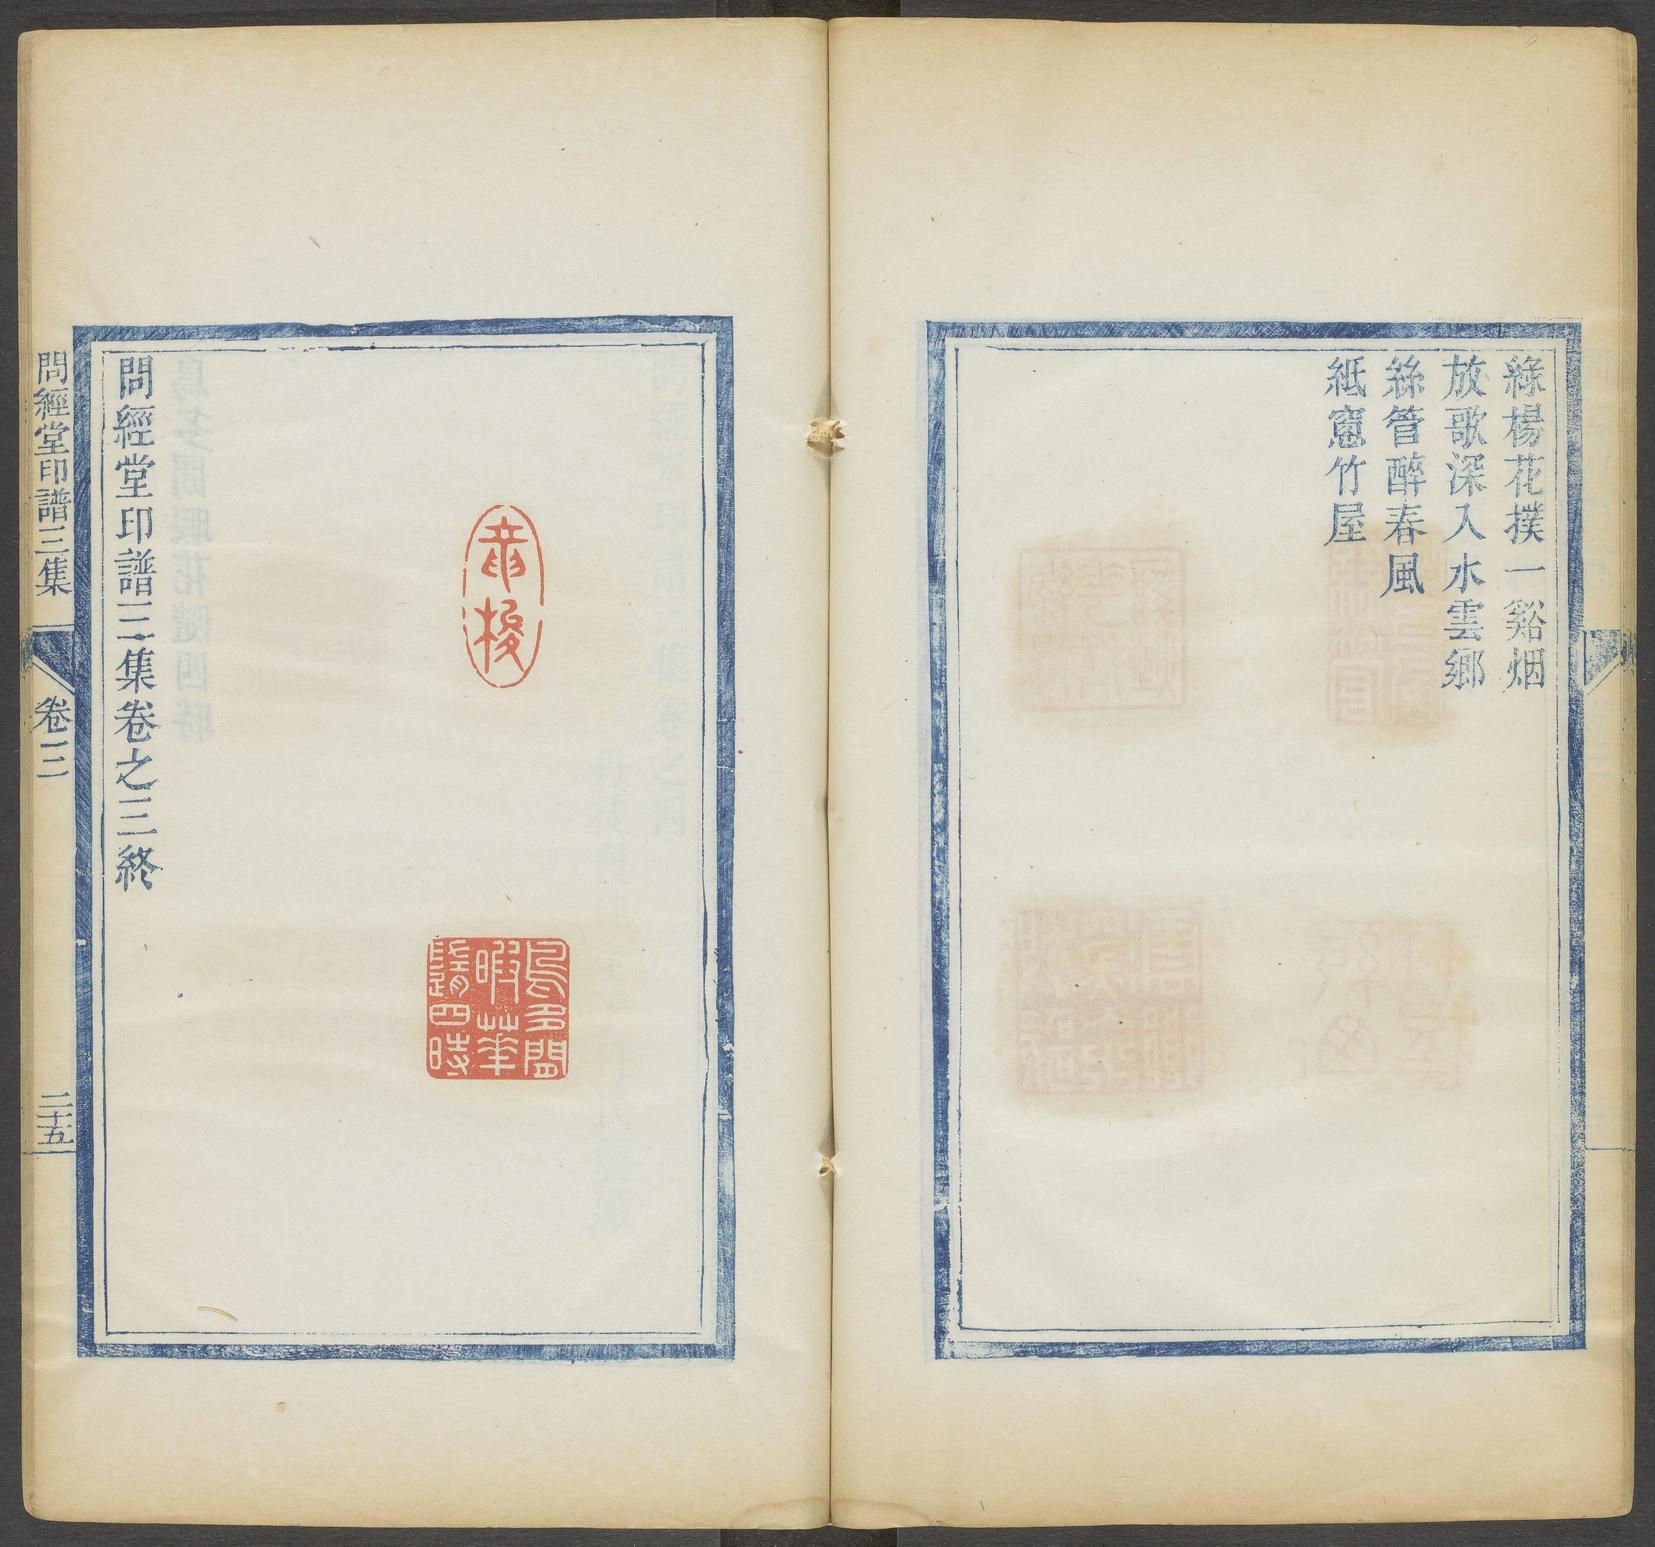 綠楊花撲一谿烟
放歌深入水雲鄉
絲管醉春風
紙窻竹屋
鳥多閒
暇華
隨四時
問經堂印譜三集卷之三終
問經堂印譜三集
卷三
二十五